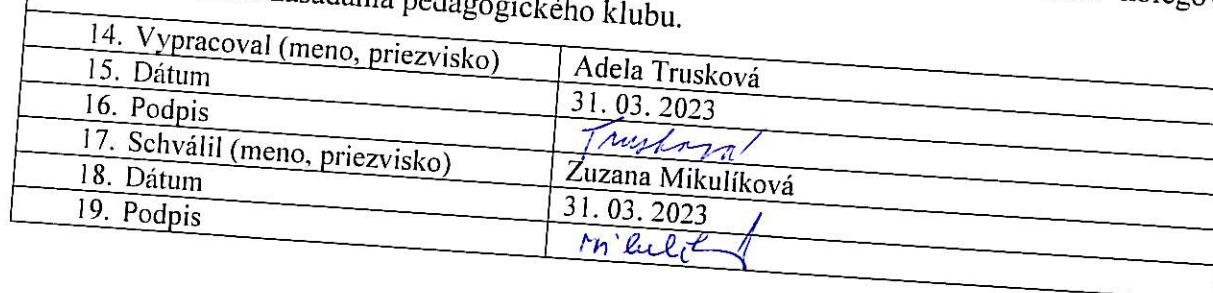 zasadnia pedagogického klubu.
14. Vypracoval (meno, priezvisko) Adela Trusková
15. Dátum 31. 03. 2023
16. Podpis Trusková
17. Schválil (meno, priezvisko) Zuzana Mikulíková
18. Dátum 31. 03. 2023
19. Podpis